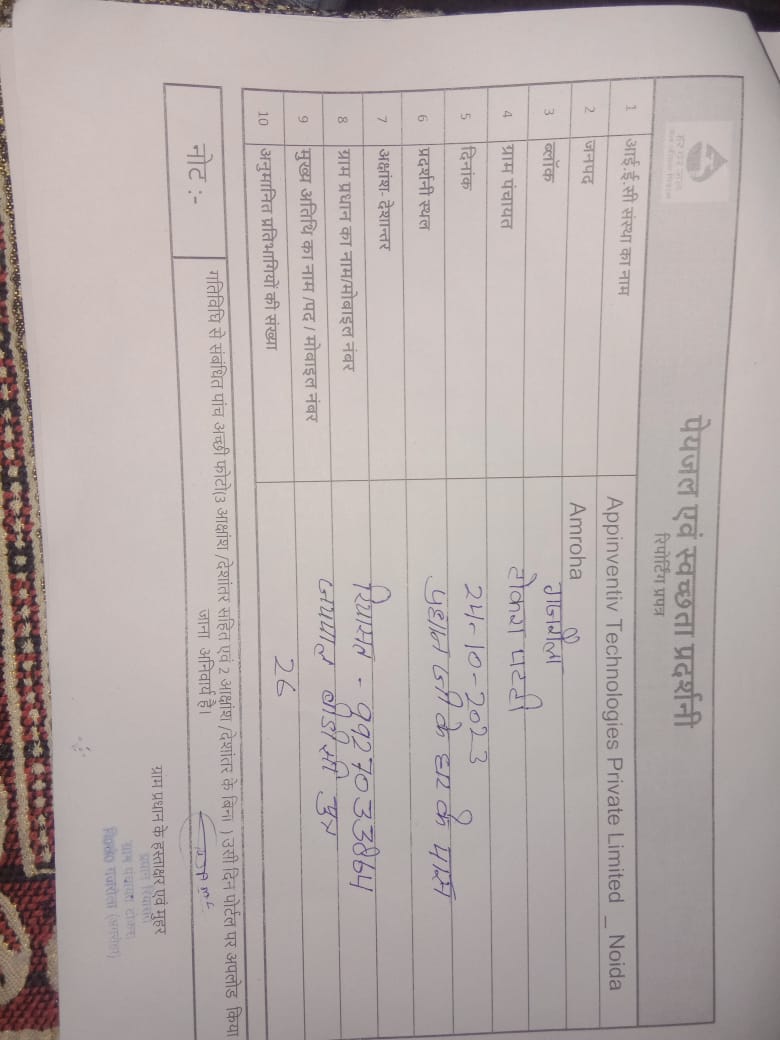 पेयजल एवं स्वच्छता प्रदर्शनी
रिपोर्टिंग प्रपत्र
1 आई.ई.सी संस्था का नाम Appinventiv Technologies Private Limited _ Noida
2 जनपद Amroha
3 ब्लॉक गजरौला
4 ग्राम पंचायत टोकरा पट्टी
5 दिनांक 24-10-2023
6 प्रदर्शनी स्थल प्रधान जी के घर के पास
7 अक्षांश- देशान्तर
8 ग्राम प्रधान का नाम/मोबाइल नंबर रियासत - 9927033864
9 मुख्य अतिथि का नाम /पद / मोबाइल नंबर जयपाल
10 अनुमानित प्रतिभागियों की संख्या 26
नोट :- गतिविधि से संबंधित पांच अच्छी फोटो(3 आक्षांश /देशांतर सहित एवं 2 आक्षांश /देशांतर के बिना ) उसी दिन पोर्टल पर अपलोड किया
जाना अनिवार्य है।
ग्राम प्रधान के हस्ताक्षर एवं मुहर